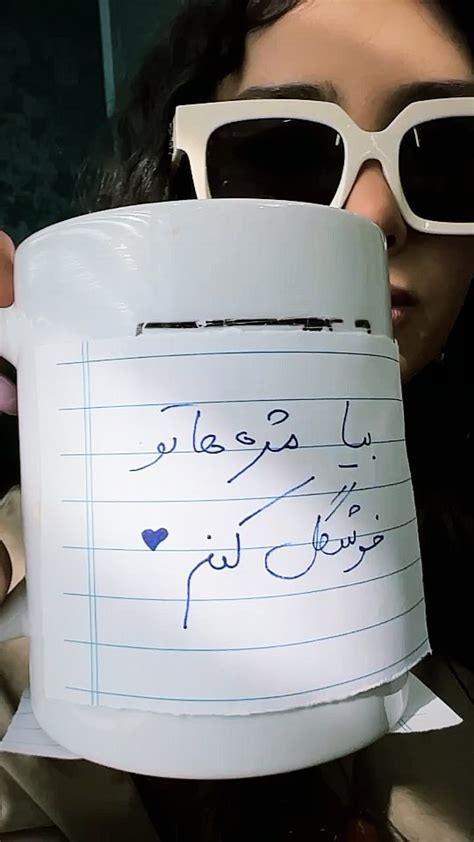 بیا مژه هاتو
خوشگل کنم